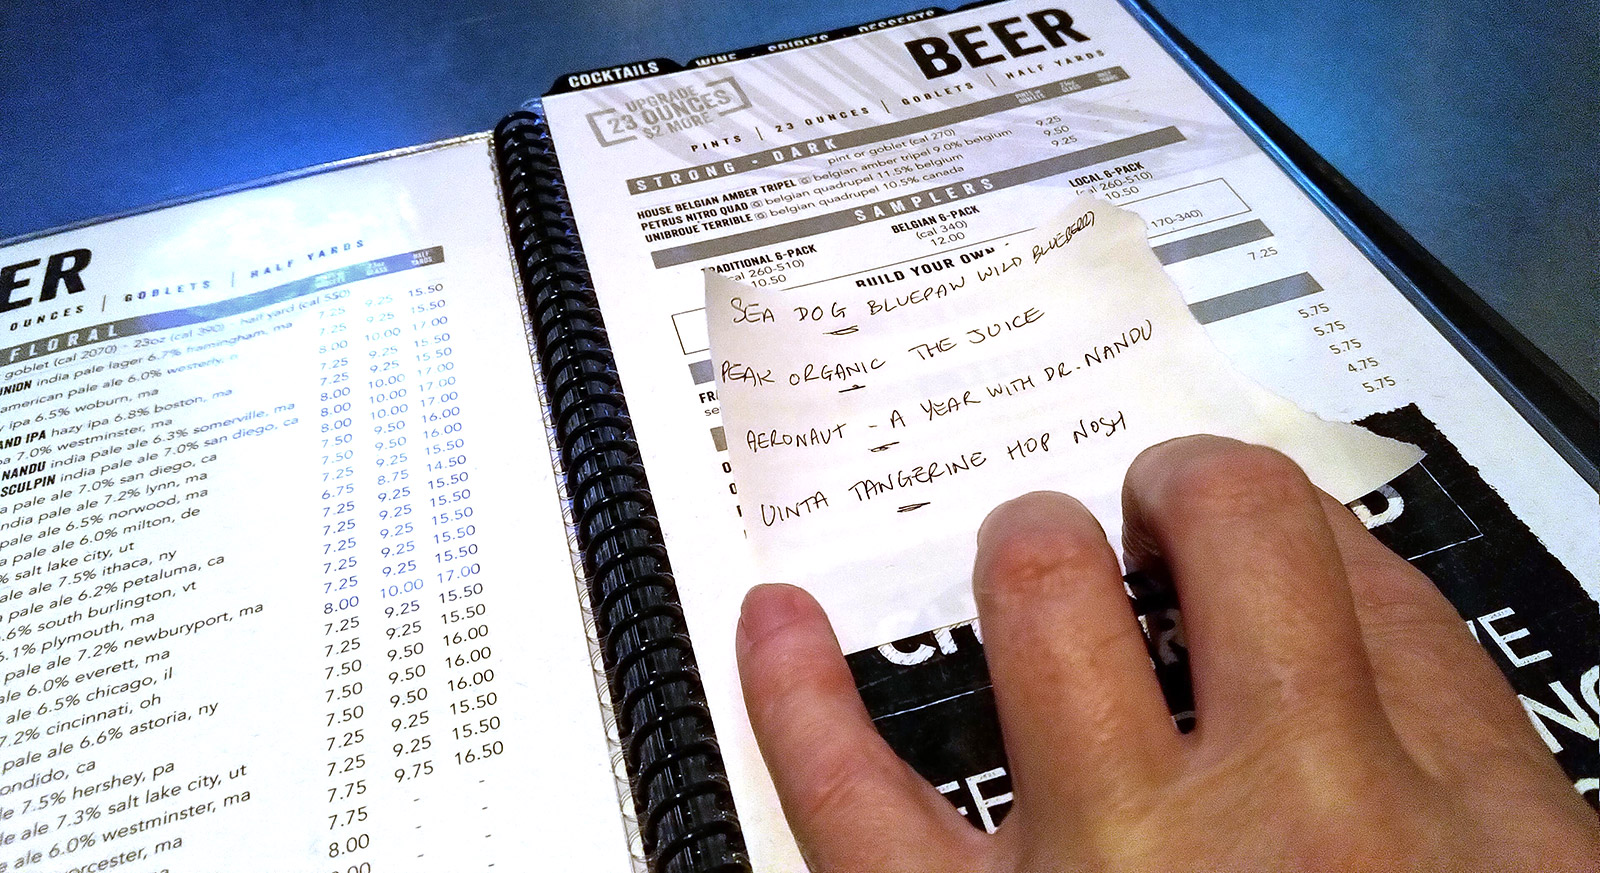 ER
OUNCES | GOBLETS | HALF YARDS
HALF YARDS
FLORAL
goblet (cal 2070) - 23oz (cal 390) - half yard (cal 550)
NION india pale lager 6.7% framingham, ma 7.25 9.25 15.50
american pale ale 6.0% westerly, 7.25 9.25 15.50
ipa 6.5% woburn, ma 8.00 10.00 17.00
AND IPA hazy ipa 6.8% boston, ma 7.25 9.25 15.50
pa 7.0% westminster, ma
NANDU india pale ale 6.3% somerville, ma
SCULPIN india pale ale 7.0% san diego, ca
pale ale 7.0% san diego, ca
india pale ale 7.2% lynn, ma
pale ale 6.5% norwood, ma
pale ale 6.0% milton, de
% salt lake city, ut
ale 7.5% ithaca, ny
pale ale 6.2% petaluma, ca
.6% south burlington, vt
6.1% plymouth, ma
pale ale 7.2% newburyport, ma
ale 6.0% everett, ma
ale 6.5% chicago, il
7.2% cincinnati, oh
pale ale 6.6% astoria, ny
ondido, ca
le 7.5% hershey, pa
ale 7.3% salt lake city, ut
ale 6.0% westminster, ma
orcester, ma
8.00 10.00 17.00
8.00 10.00 17.00
7.50 9.50 16.00
7.25 9.25 15.50
6.75 8.75 14.50
7.25 9.25 15.50
7.25 9.25 15.50
7.25 9.25 15.50
7.25 9.25 15.50
8.00 10.00 17.00
7.25 9.25 15.50
7.25 9.25 15.50
7.50 9.50 16.00
7.50 9.50 16.00
7.50 9.50 16.00
7.25 9.25 15.50
7.25 9.25 15.50
7.75 9.75 16.50
7.75 - -
8.00 - -
COCKTAILS WINE · SPIRITS · DESSERTS
BEER
UPGRADE
23 OUNCES
$2 MORE
PINTS | 23 OUNCES | GOBLETS | HALF YARDS
STRONG · DARK
pint or goblet (cal 270)
HOUSE BELGIAN AMBER TRIPEL G belgian amber tripel 9.0% belgium 9.25
PETRUS NITRO QUAD G belgian quadrupel 11.5% belgium 9.50
UNIBROUE TERRIBLE G belgian quadrupel 10.5% canada 9.25
SAMPLERS
TRADITIONAL 6-PACK
(cal 260-510)
10.50
BELGIAN 6-PACK
(cal 340)
12.00
LOCAL 6-PACK
(cal 260-510)
10.50
BUILD YOUR OWN
170-340)
7.25
5.75
5.75
5.75
4.75
5.75
SEA DOG BLUEPAW WILD BLUEBERRY
PEAK ORGANIC THE JUICE
AERONAUT - A YEAR WITH DR. NANDU
UINTA TANGERINE HOP NOSH